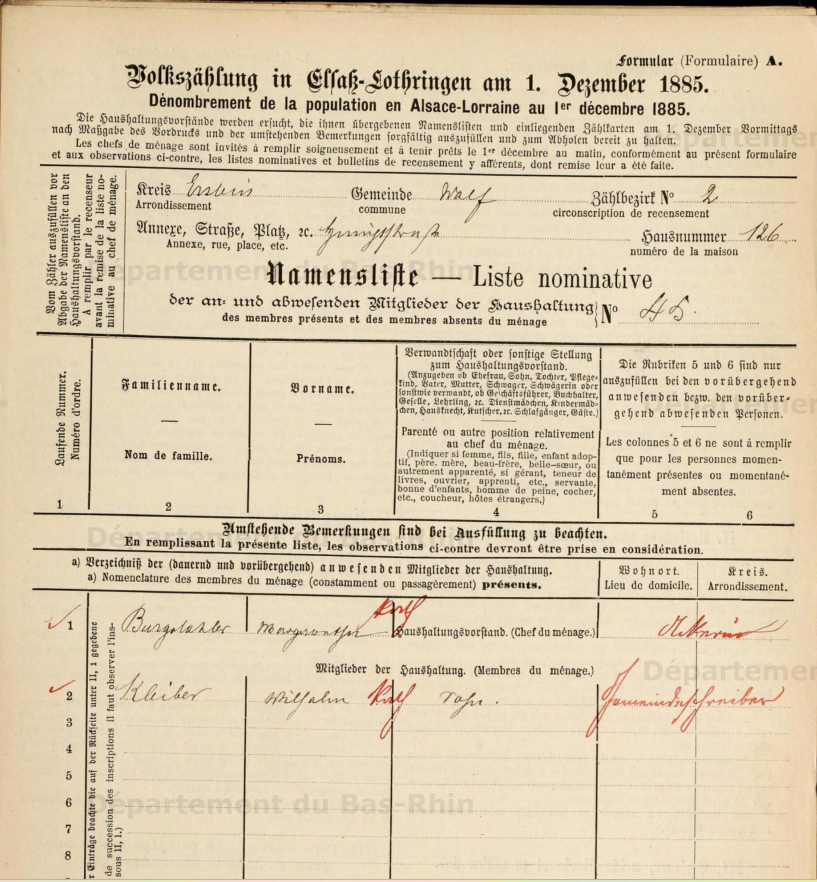 Formular (Formulaire) A.
Volkszählung in Elsaß-Lothringen am 1. Dezember 1885.
Dénombrement de la population en Alsace-Lorraine au 1er décembre 1885.
Die Haushaltungsvorstände werden ersucht, die ihnen übergebenen Namenslisten und einliegenden Zählkarten am 1. Dezember Vormittags
nach Maßgabe des Vordrucks und der umstehenden Bemerkungen sorgfältig auszufüllen und zum Abholen bereit zu halten.
Les chefs de ménage sont invités à remplir soigneusement et à tenir prêts le 1er décembre au matin, conformément au présent formulaire
et aux observations ci-contre, les listes nominatives et bulletins de recensement y afférents, dont remise leur a été faite.
Vom Zähler auszufüllen vor
Abgabe der Namensliste an den
Haushaltungsvorstand.
A remplir par le recenseur
avant la remise de la liste no-
minative au chef de ménage.
Kreis Erstein Gemeinde Walf Zählbezirk No 2
Arrondissement commune circonscription de recensement
Annexe, Straße, Platz, ꝛc. Hausnummer 126
Annexe, rue, place, etc. numéro de la maison
Namensliste — Liste nominative
der an- und abwesenden Mitglieder der Haushaltung No 45.
des membres présents et des membres absents du ménage
Laufende Nummer.
Numéro d'ordre.
1
Familienname.
Nom de famille.
2
Vorname.
Prénoms.
3
Verwandtschaft oder sonstige Stellung
zum Haushaltungsvorstand.
(Anzugeben ob Ehefrau, Sohn, Tochter, Pflege-
kind, Vater, Mutter, Schwager, Schwägerin oder
sonstwie verwandt, ob Geschäftsführer, Buchhalter,
Geselle, Lehrling, ꝛc. Dienstmädchen, Kindermäd-
chen, Hausknecht, Kutscher, ꝛc. Schlafgänger, Gäste.)
Parenté ou autre position relativement
au chef du ménage.
(Indiquer si femme, fils, fille, enfant adop-
tif, père, mère, beau-frère, belle-sœur, ou
autrement apparenté, si gérant, teneur de
livres, ouvrier, apprenti, etc., servante,
bonne d'enfants, homme de peine, cocher,
etc., coucheur, hôtes étrangers.)
4
Die Rubriken 5 und 6 sind nur
auszufüllen bei den vorübergehend
anwesenden bezw. den vorüber-
gehend abwesenden Personen.
Les colonnes 5 et 6 ne sont à remplir
que pour les personnes momen-
tanément présentes ou momentané-
ment absentes.
5 6
Umstehende Bemerkungen sind bei Ausfüllung zu beachten.
En remplissant la présente liste, les observations ci-contre devront être prise en considération.
a) Verzeichniß der (dauernd und vorübergehend) anwesenden Mitglieder der Haushaltung.
a) Nomenclature des membres du ménage (constamment ou passagèrement) présents.
Wohnort. Kreis.
Lieu de domicile. Arrondissement.
r Einträge beachte die auf der Rückseite unter II, 1 gegebene
de succession des inscriptions il faut observer l'ins-
sous II, 1.)
Kath
1 Burgstahler Margaretha Haushaltungsvorstand. (Chef du ménage.) Ackerin
Mitglieder der Haushaltung. (Membres du ménage.)
2 Kleiber Wilhelm Kath Sohn. Gemeindeschreiber
3
4
5
6
7
8
Département du Bas-Rhin
Département du Bas-Rhin
Département du Bas-Rhin